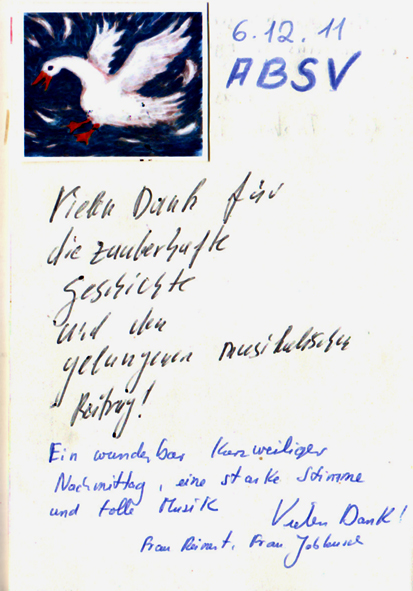 6.12.11
ABSV
Vielen Dank für
die zauberhafte
Geschichte
und den
gelungenen musikalischen
Beitrag!
Ein wunderbar kurzweiliger
Nachmittag, eine starke Stimme
und tolle Musik
Vielen Dank!
Frau Reinert, Frau